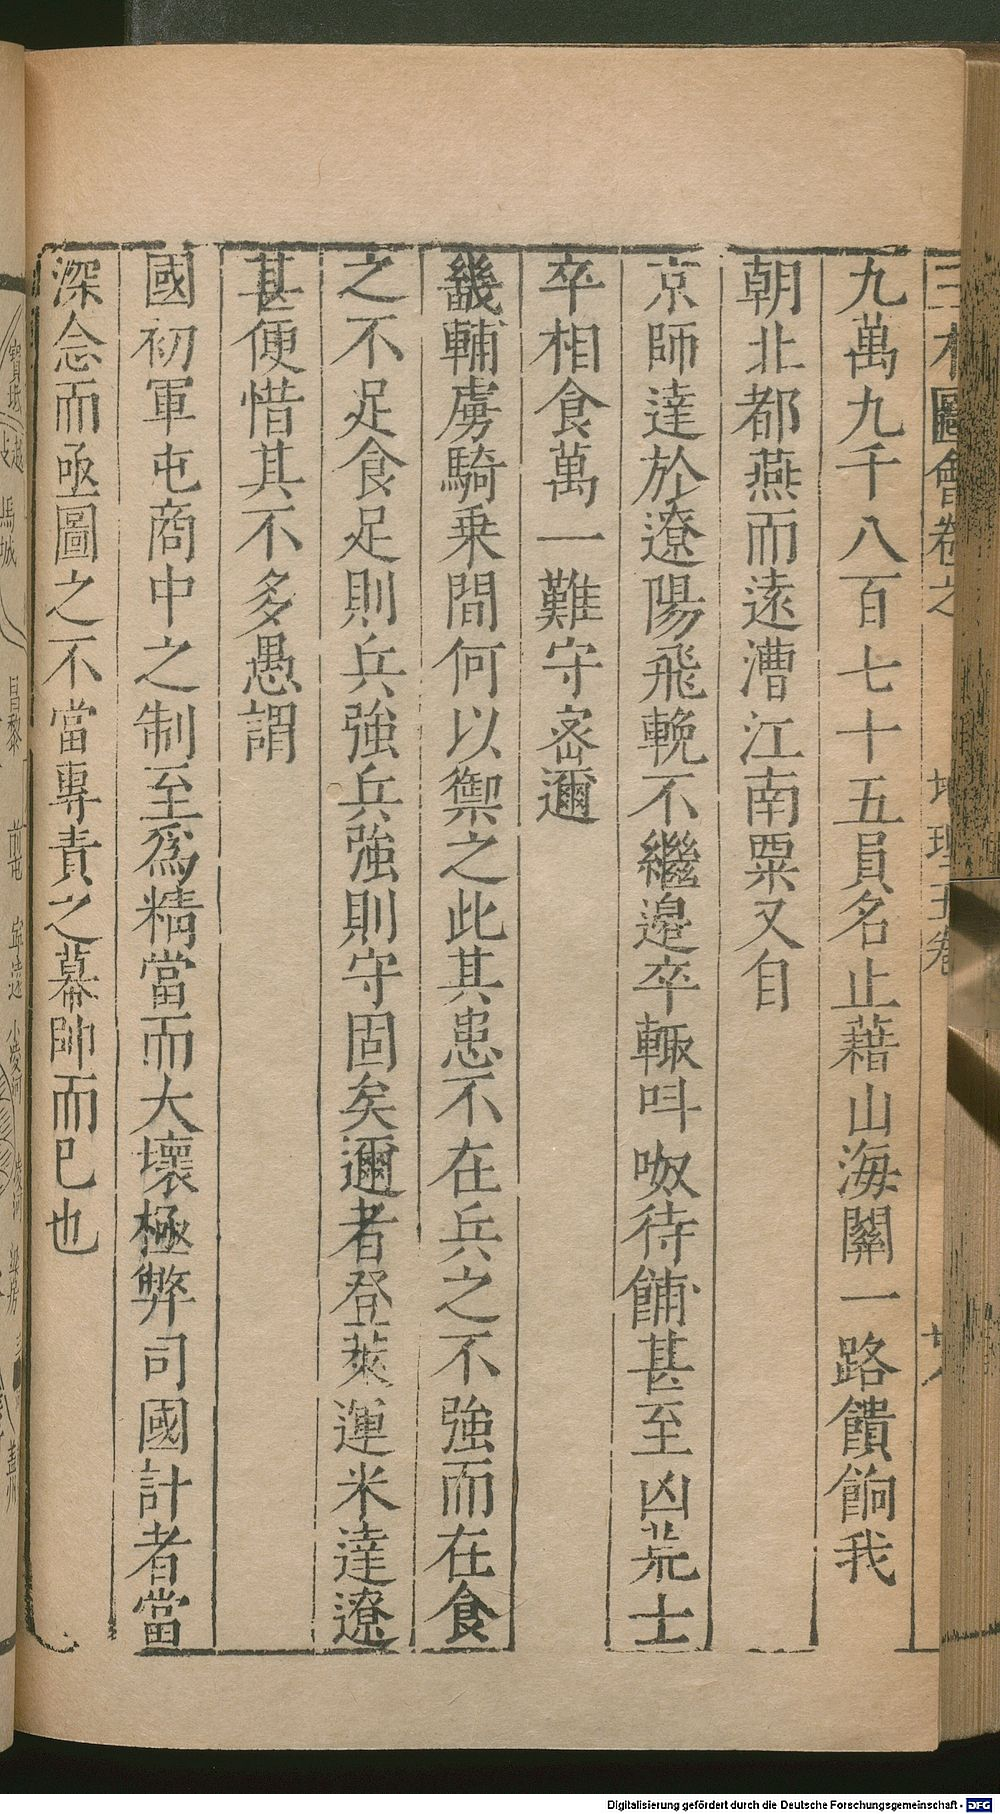 三才圖會卷之
地理三卷
九萬九千八百七十五員名止藉山海關一路饋餉我
朝北都燕而遠漕江南粟又自
京師達於遼陽飛輓不繼邉卒輙呌呶待餔甚至凶荒士
卒相食萬一難守宻邇
畿輔虜騎乗間何以禦之此其患不在兵之不強而在食
之不足食足則兵強兵強則守固矣邇者登萊運米達遼
甚便惜其不多愚謂
國初軍屯商中之制至爲精當而大壞極弊司國計者當
深念而亟圖之不當專責之幕帥而已也
昌黎
寧遠
蓋州
Digitalisierung gefördert durch die Deutsche Forschungsgemeinschaft - DFG